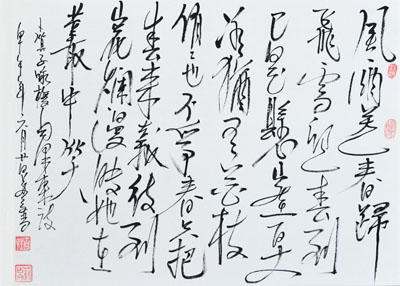 風雨送春歸
飛雪迎春到
已是懸崖百丈
冰猶有花枝
俏也不爭春只把
春來報待到
山花爛漫時她在
叢中笑
卜算子咏梅毛澤東詞
甲午年六月廿日書